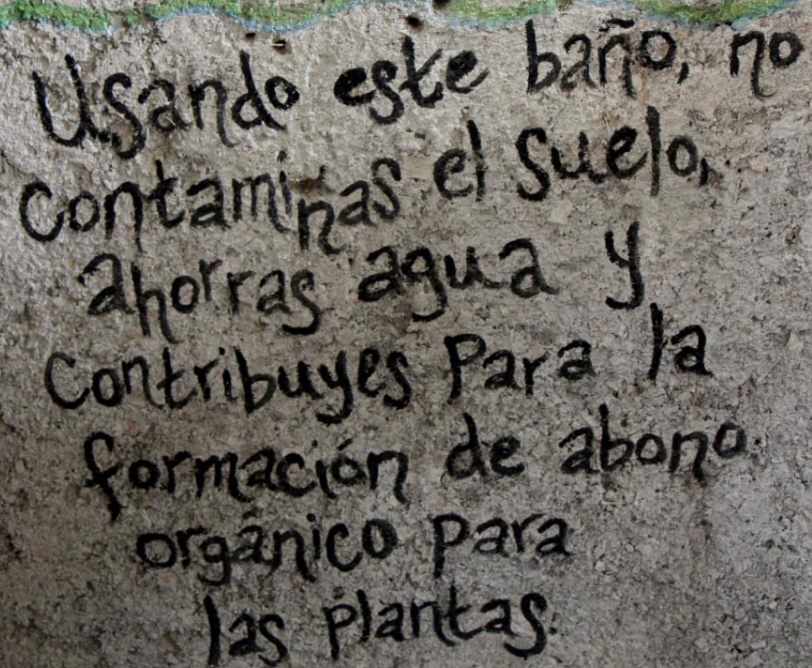 Usando este baño, no
contaminas el suelo,
ahorras agua y
contribuyes para la
formación de abono
orgánico para
las plantas.